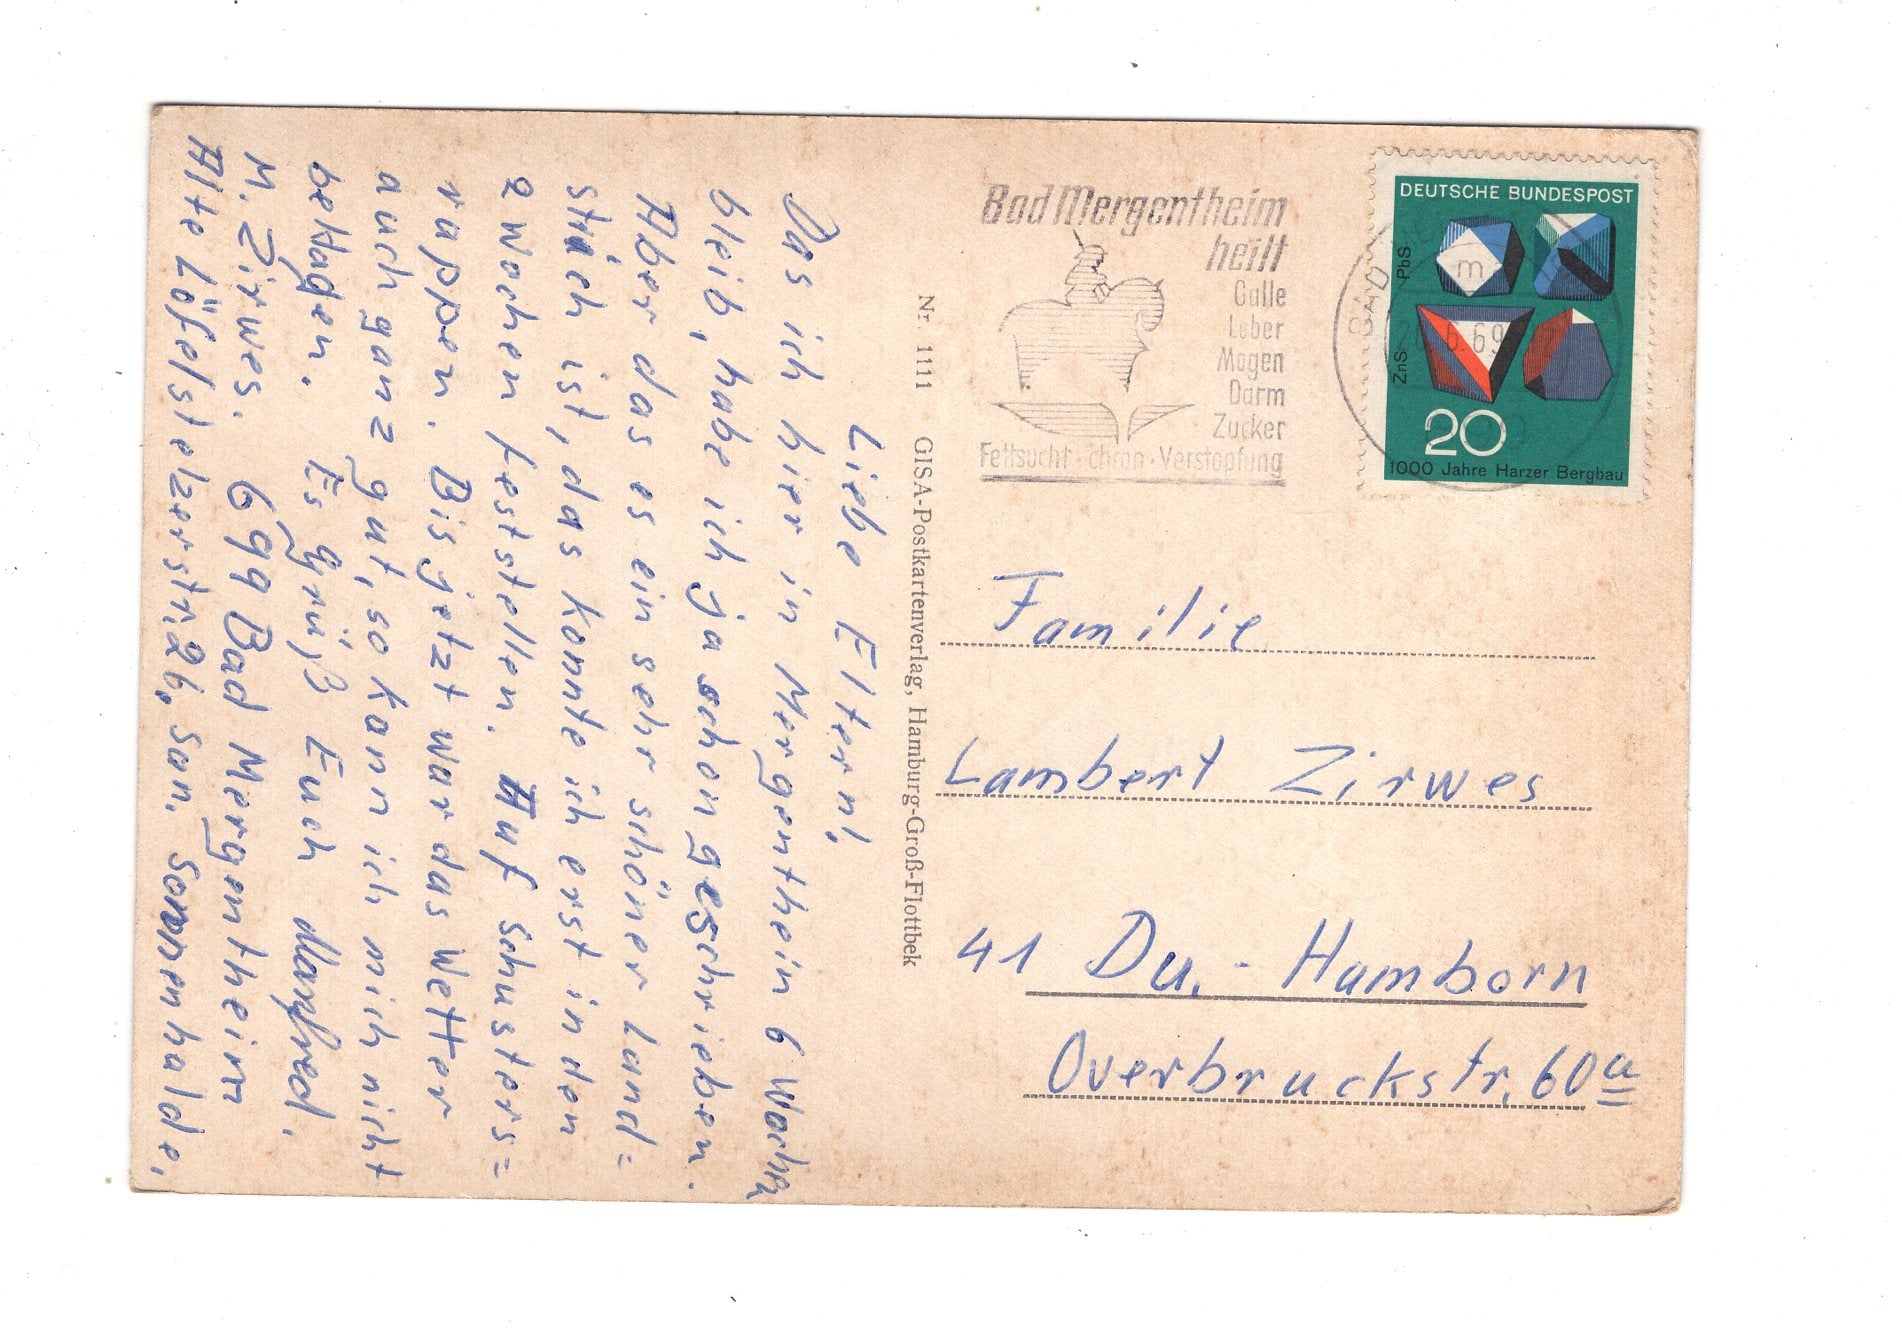 Liebe Eltern!
Das ich hier in Mergentheim 6 Wochen
bleib, habe ich ja schon geschrieben.
Aber das es ein sehr schöner Land=
strich ist, das konnte ich erst in den
2 Wochen feststellen. Auf Schusters=
rappen. Bis jetzt war das Wetter
auch ganz gut, so kann ich mich nicht
beklagen. Es grüß Euch Manfred.
M. Zirwes. 699 Bad Mergentheim
Alte Löfelstelzerstr. 26, San. Sonnenhalde,
Nr. 1111 GISA-Postkartenverlag, Hamburg-Groß-Flottbek
Bad Mergentheim
heilt
Galle
Leber
Magen
Darm
Zucker
Fettsucht · chron · Verstopfung
BAD
m
6.69
DEUTSCHE BUNDESPOST
PbS
ZnS
20
1000 Jahre Harzer Bergbau
Familie
Lambert Zirwes
41 Du. - Hamborn
Overbruckstr. 60a